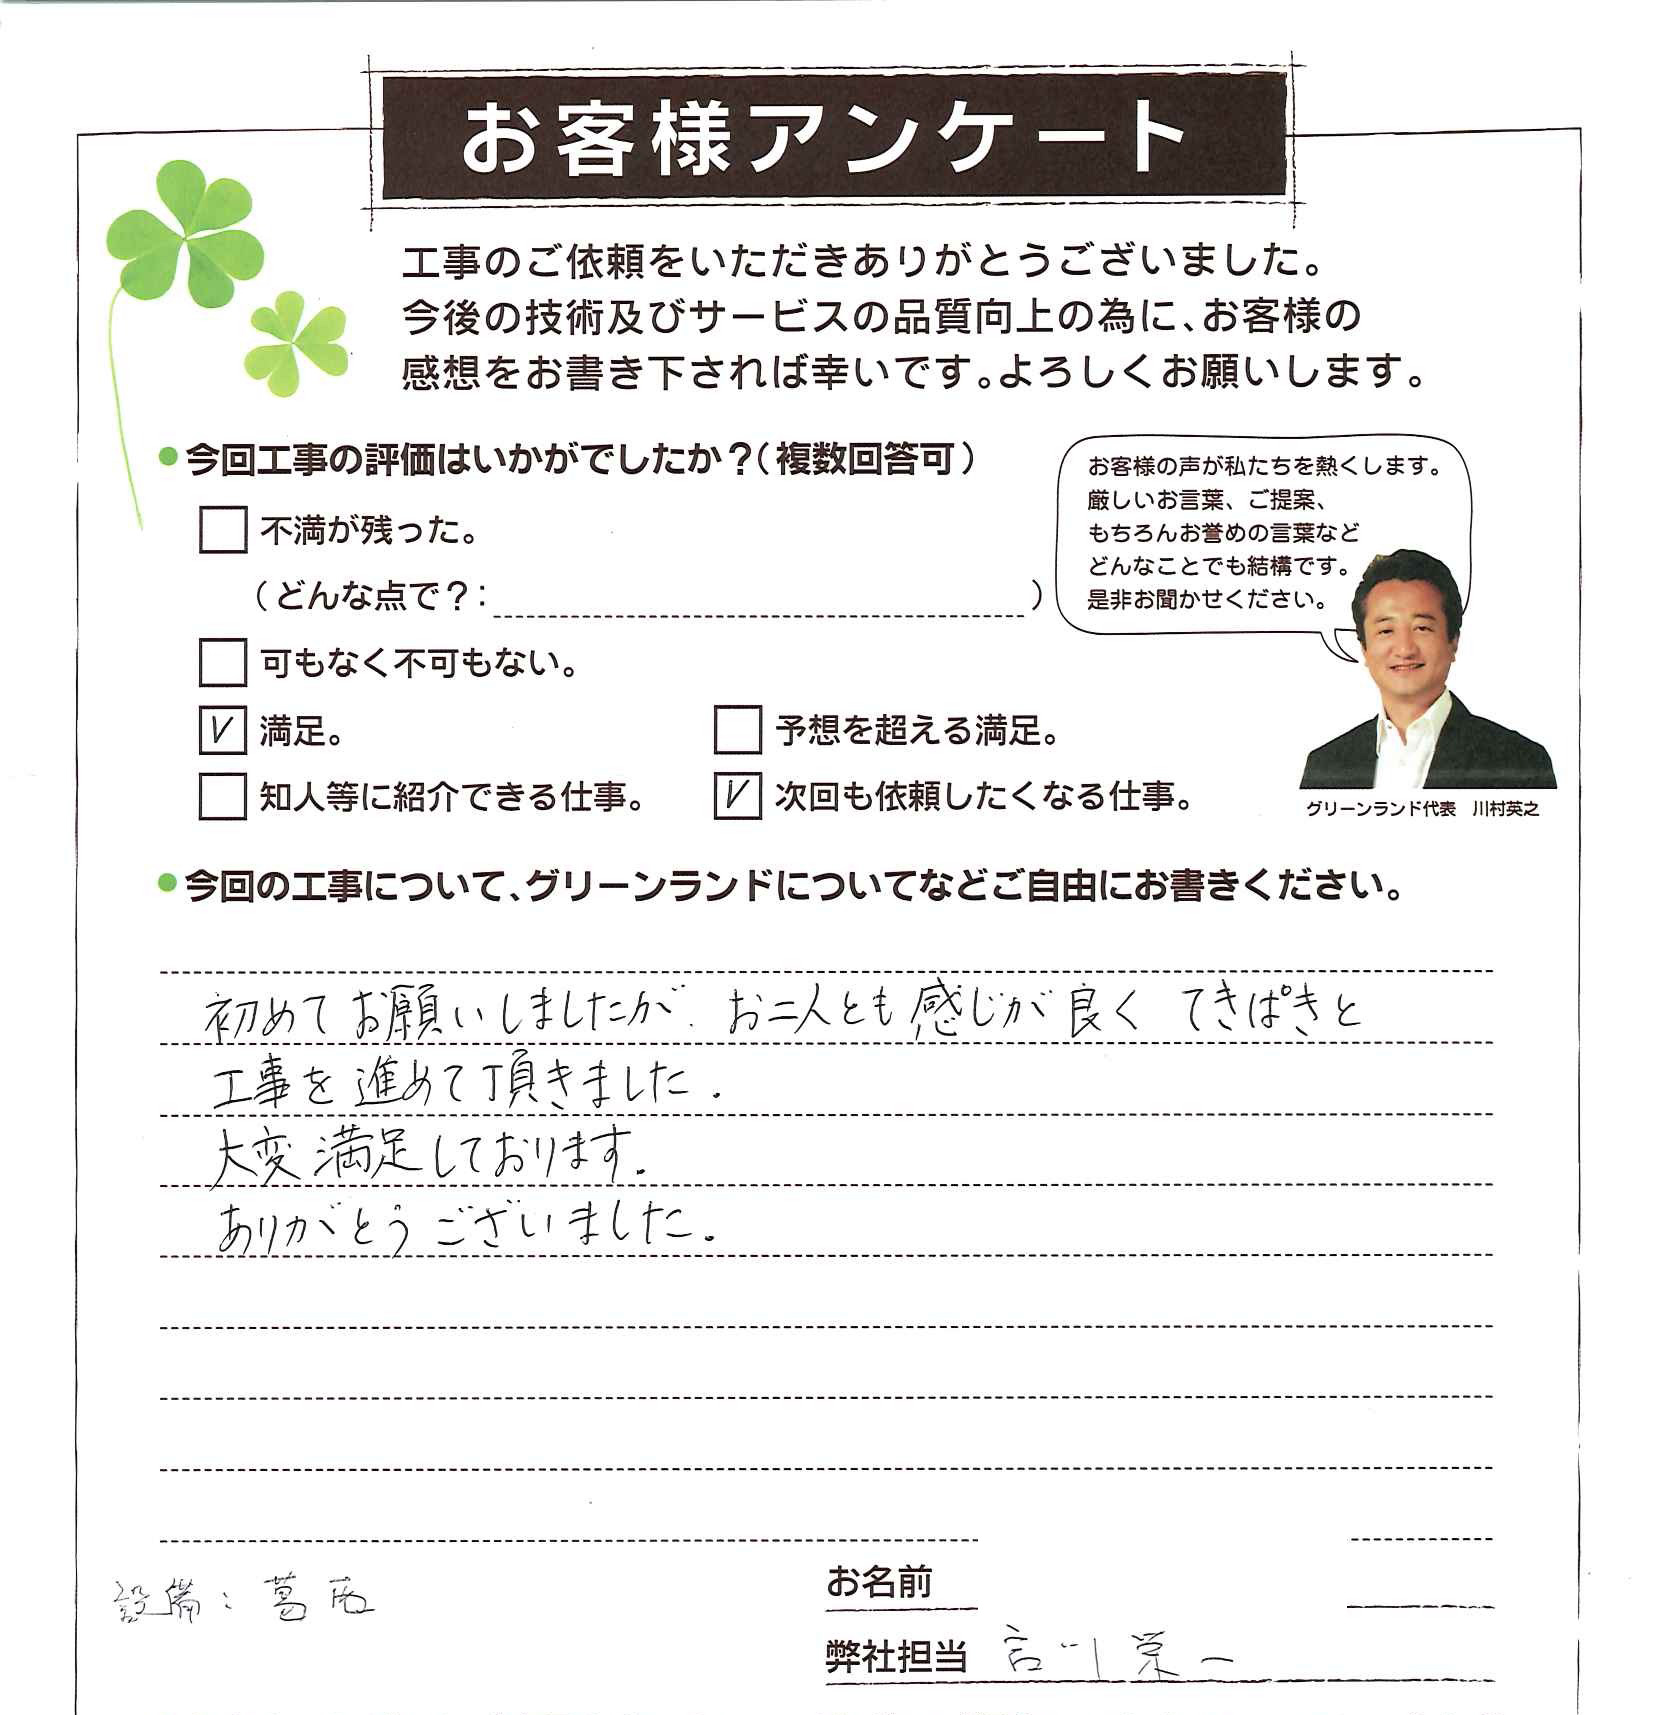 お客様アンケート
工事のご依頼をいただきありがとうございました。
今後の技術及びサービスの品質向上の為に、お客様の
感想をお書き下されば幸いです。よろしくお願いします。
●今回工事の評価はいかがでしたか？（複数回答可）
お客様の声が私たちを熱くします。
厳しいお言葉、ご提案、
もちろんお誉めの言葉など
どんなことでも結構です。
是非お聞かせください。
不満が残った。
（どんな点で？： ）
可もなく不可もない。
V 満足。
予想を超える満足。
知人等に紹介できる仕事。
V 次回も依頼したくなる仕事。
グリーンランド代表　川村英之
●今回の工事について、グリーンランドについてなどご自由にお書きください。
初めてお願いしましたが、お二人とも感じが良く てきぱきと
工事を進めて頂きました.
大変満足しております.
ありがとうございました.
お名前
設備：葛西
弊社担当 川栄一